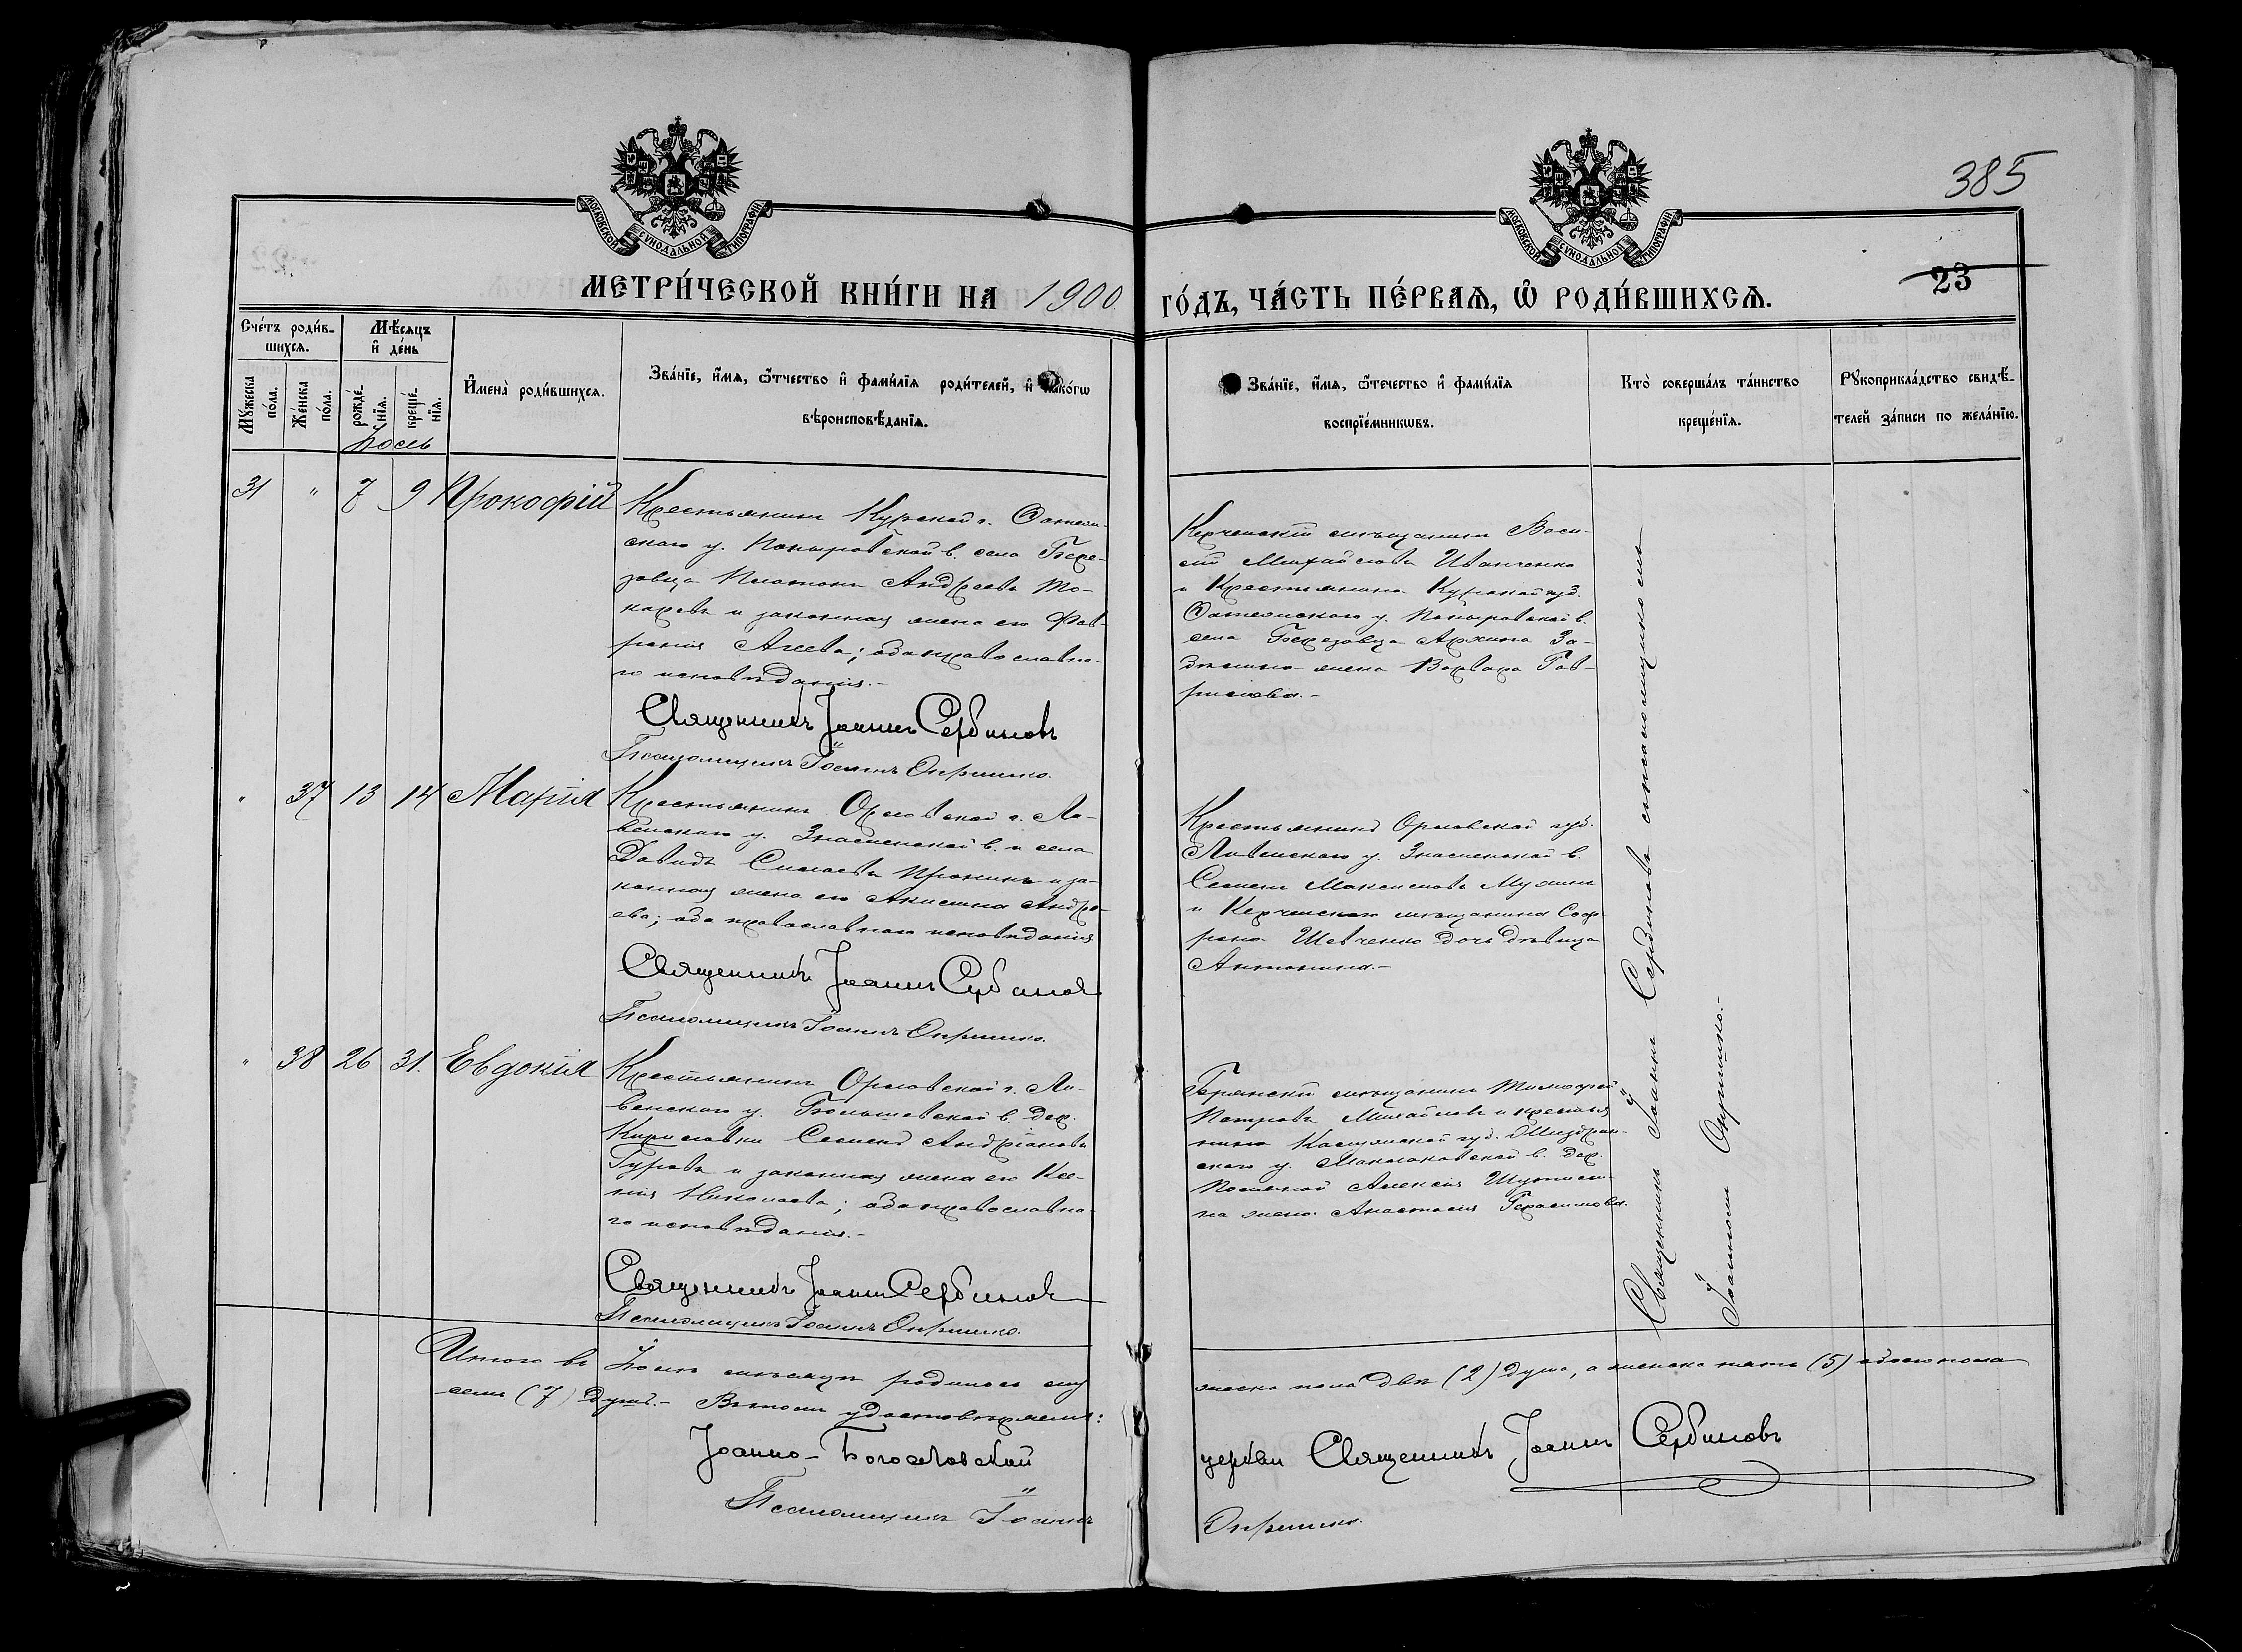 385
МОСКОВСКОЙ СѴНОДАЛЬНОЙ ТИПОГРАФІИ
МОСКОВСКОЙ СѴНОДАЛЬНОЙ ТИПОГРАФІИ
23
МЕТРИ́ЧЕСКОЙ КНИ́ГИ НА 1900
ГО́ДЪ, ЧА́СТЬ ПЕ́РВАѦ, Ѿ РОДИ́ВШИХСѦ.
Сче́тъ роди́в-
шихсѧ.
Мꙋжеска по́ла.
Же́нска по́ла.
Мѣ́сѧцъ
и҆ де́нь
рожде́-
нїѧ.
креще́-
нїѧ.
Іюль
И҆мена̀ роди́вшихсѧ.
Зва́нїе, и҆́мѧ, ѻ҆́тчество и҆ фами́лїѧ роди́телей, и҆ како́гѡ
вѣроисповѣ́данїѧ.
Зва́нїе, и҆́мѧ, ѻ҆́течество и҆ фами́лїѧ
воспрїе́мникѡвъ.
Кто̀ соверша́лъ та́инство
креще́нїѧ.
Рꙋкоприкла́дство свидѣ́-
телей за́писи по жела́нїю.
31 " 7 9 Прокофій
Крестьянинъ Курской г. Фатеж-
скаго у. Поныровской в. села Бере-
зовца Платонъ Андреевъ То-
каревъ и законная жена его Фев-
ронія Агеева; оба православна-
го исповѣданія.-
Священникъ Іоаннъ Сербиновъ
Псаломщикъ Іоаннъ Окришко.
Керченскій мѣщанинъ Васи-
лій Михайловъ Иванченко
и Крестьянина Курской губ.
Фатежскаго у. Поныровской в.
села Березовца Архипа
жена Варвара Гав-
рилова.-
" 37 13 14 Марія
Крестьянинъ Орловской г. Ли-
венскаго у. Знаменской в. и села
Давидъ Силаевъ Пронинъ и за-
конная жена его Акилина Андре-
ева; оба православнаго исповѣданія
Священникъ Іоаннъ Сербиновъ
Псаломщикъ Іоаннъ Окришко.
Крестьянинъ Орловской губ.
Ливенскаго у. Знаменской в.
Семенъ Максимовъ
и Керченскаго мѣщанина Соф-
рона Шевченко дочь дѣвица
Антонина.-
" 38 26 31. Евдокія
Крестьянинъ Орловской г. Ли-
венскаго у. в. дер.
Кириловки Семенъ Андріановъ
Гуровъ и законная жена его Ксе-
нія Николаева; оба православна-
го исповѣданія.-
Священникъ Іоаннъ Сербиновъ
Псаломщикъ Іоаннъ Окришко.
мѣщанинъ Тимофей
Петровъ Михайловъ и крестья-
нина губ.
скаго у. в. дер.
Алексія
на жена Анастасія Герасимова.
Священникъ Іоаннъ Сербиновъ съ псаломщикомъ
Іоанномъ Окришко.-
Итого въ Іюлѣ мѣсяцѣ родилось муж-
жеска пола двѣ (2) душа, а женска пять (5) обоего пола
семь (7) душъ.- Въ томъ удостовѣряемъ:
Іоанно-Богословской
церкви Священникъ Іоаннъ Сербиновъ
Псаломщикъ Іоаннъ
Окришко.